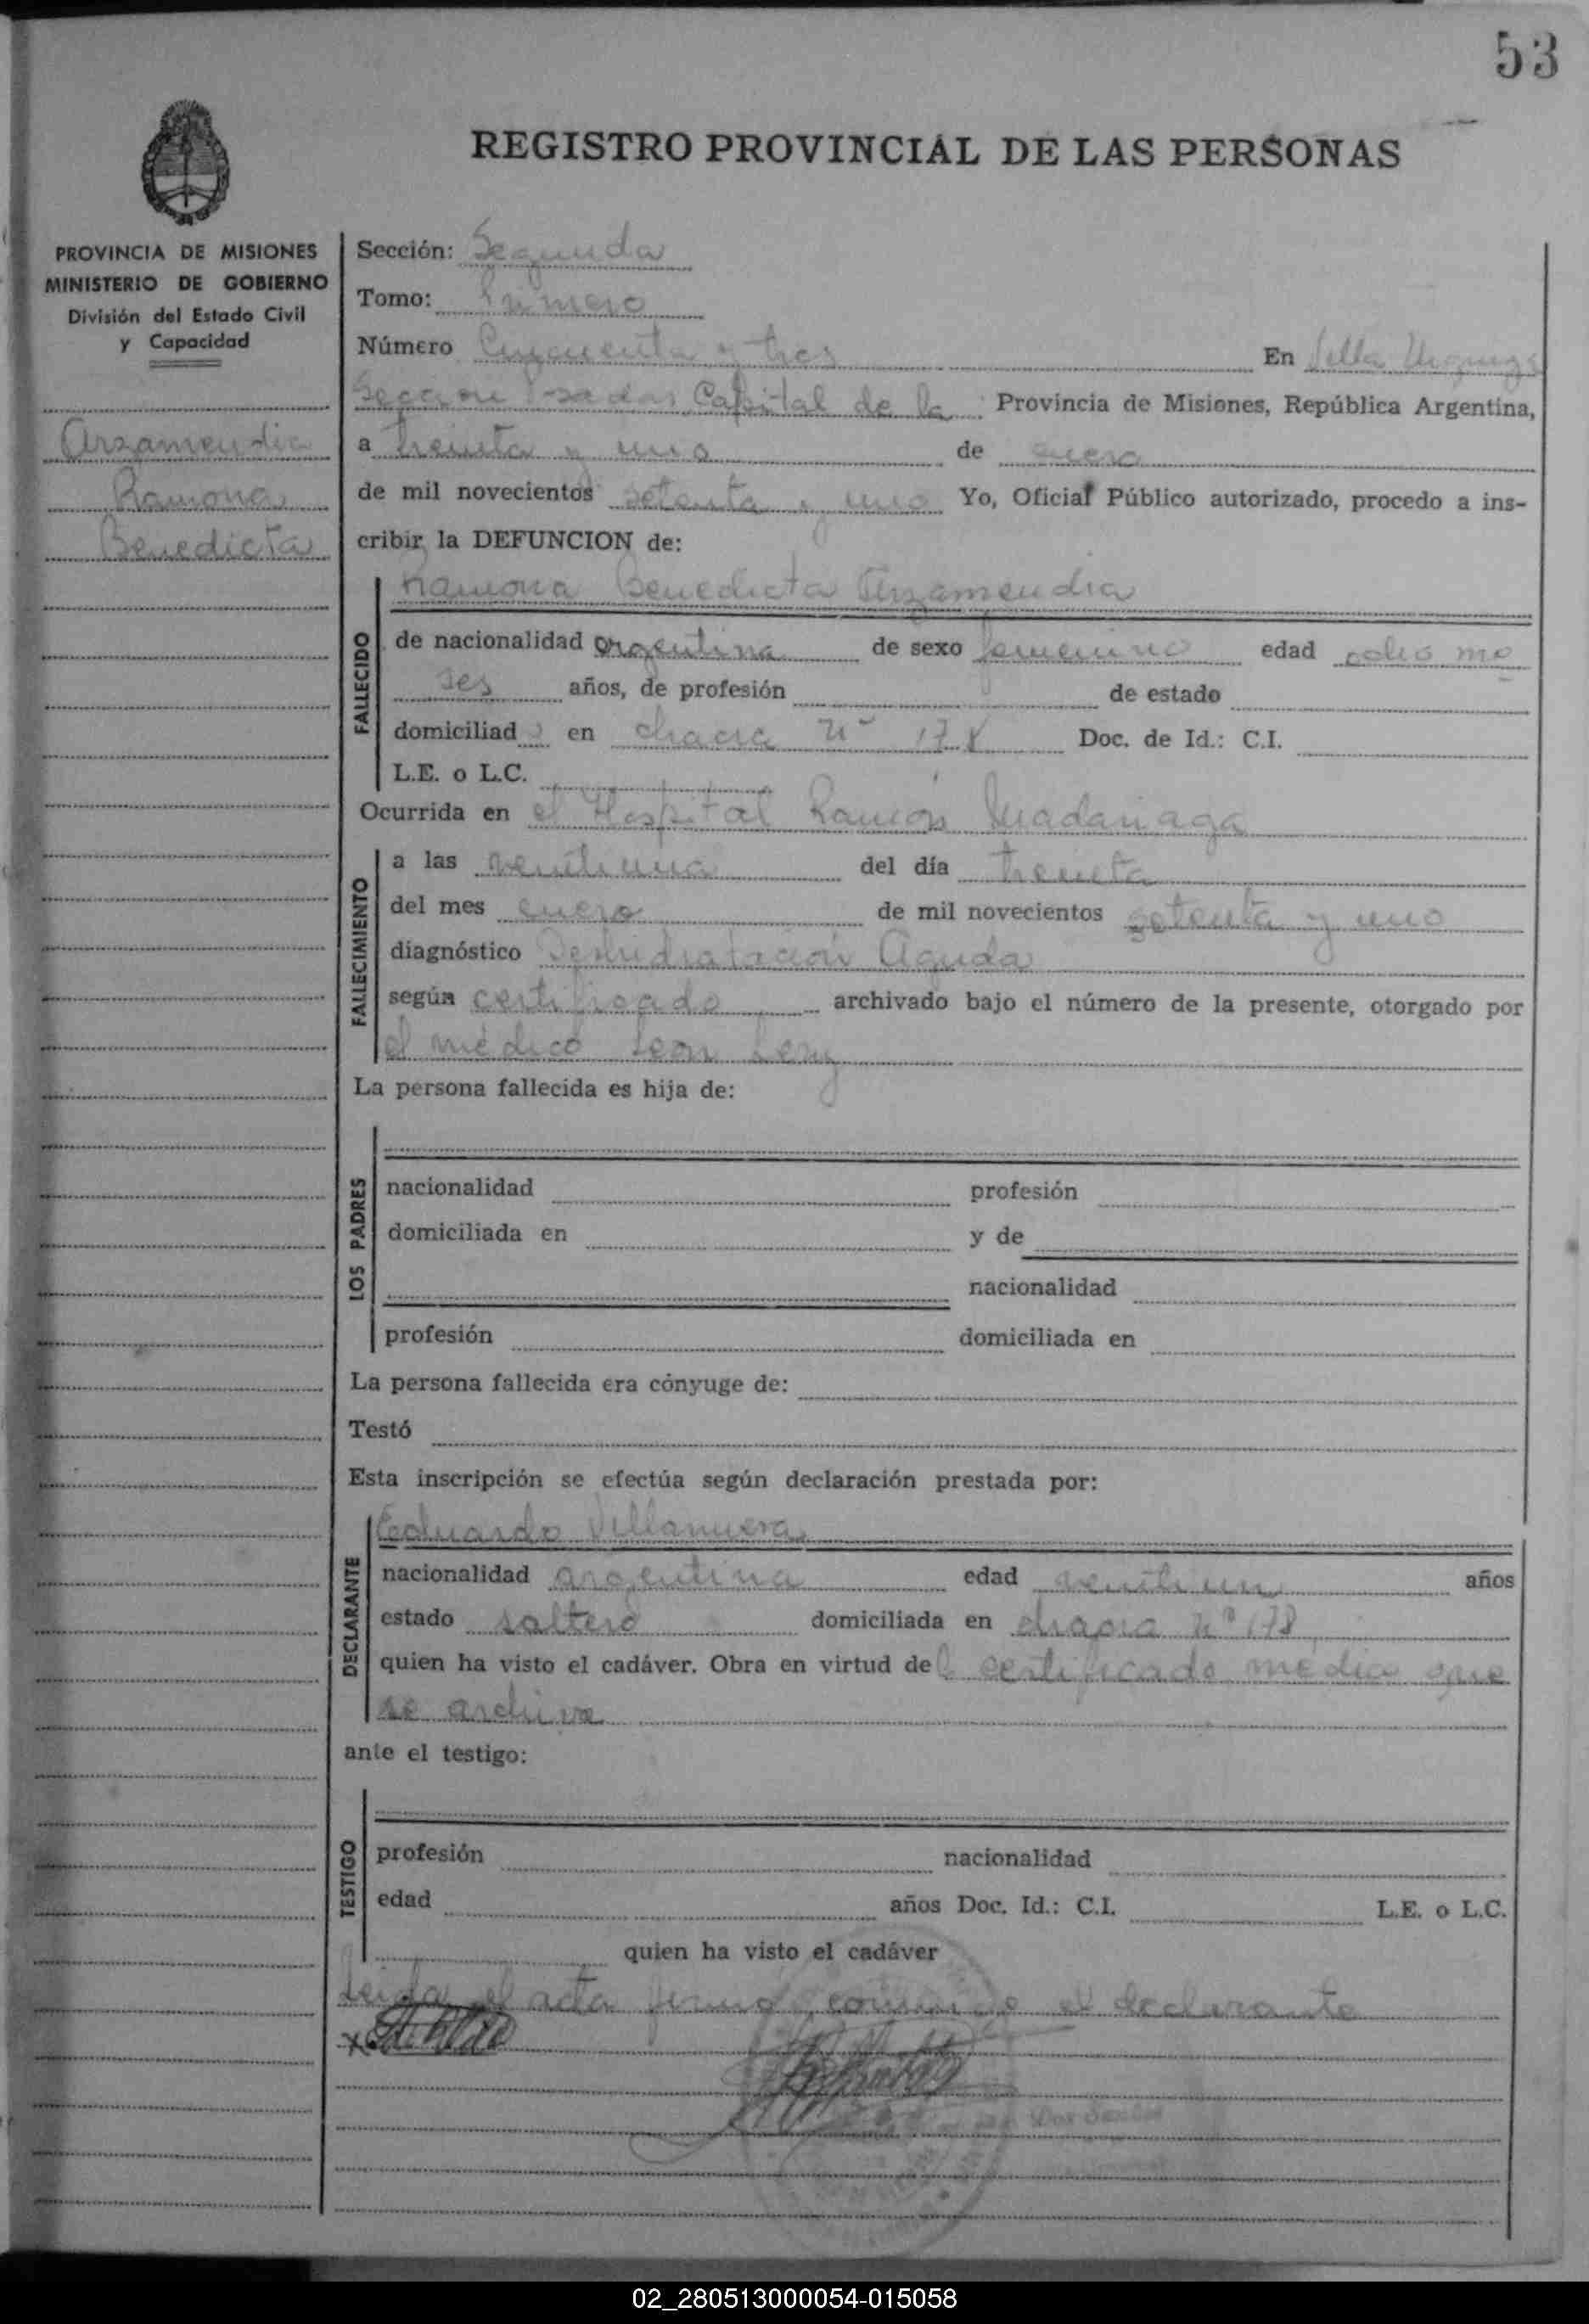 53
REGISTRO PROVINCIAL DE LAS PERSONAS
PROVINCIA DE MISIONES
MINISTERIO DE GOBIERNO
División del Estado Civil
y Capacidad
Arzamendia
Ramona
Benedicta
Sección: Segunda
Tomo: Primero
Número Cincuenta y tres En Villa Urquiza
Sección Posadas Capital de la Provincia de Misiones, República Argentina,
a treinta y uno de enero
de mil novecientos setenta y uno Yo, Oficial Público autorizado, procedo a ins-
cribir la DEFUNCION de:
Ramona Benedicta Arzamendia
FALLECIDO
de nacionalidad argentina de sexo femenino edad ocho me
ses años, de profesión de estado
domiciliad en chacra Nº 178 Doc. de Id.: C.I.
L.E. o L.C.
Ocurrida en el Hospital Ramón Madariaga
FALLECIMIENTO
a las ventiuna del día treinta
del mes enero de mil novecientos setenta y uno
diagnóstico Deshidratación Aguda
según certificado archivado bajo el número de la presente, otorgado por
el médico León
La persona fallecida es hija de:
LOS PADRES
nacionalidad profesión
domiciliada en y de
nacionalidad
profesión domiciliada en
La persona fallecida era cónyuge de:
Testó
Esta inscripción se efectúa según declaración prestada por:
Eduardo Villanueva
DECLARANTE
nacionalidad argentina edad ventiun años
estado soltero domiciliada en chacra Nº 178
quien ha visto el cadáver. Obra en virtud del certificado medico que
se archiva
ante el testigo:
TESTIGO
profesión nacionalidad
edad años Doc. Id.: C.I. L.E. o L.C.
quien ha visto el cadáver
Leida el acta firmó conmigo el declarante
Dos Santos
02_280513000054-015058